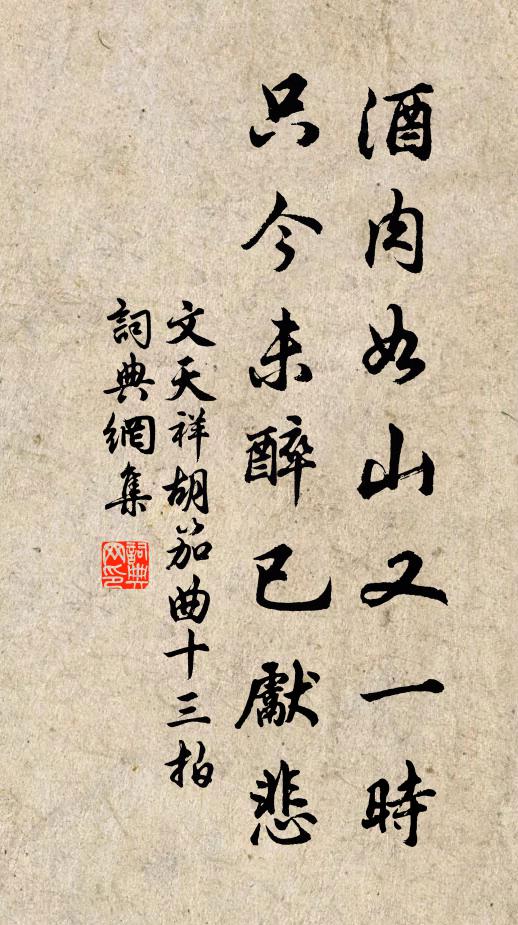 酒肉如山又一時
只今未醉已獻悲
文天祥胡笳曲十三拍
詞典網集
詞典网印